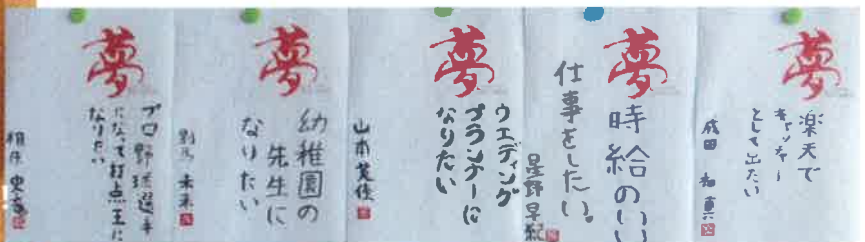 夢
楽天で
キャッチャー
として出たい
成田
夢
時給のいい
仕事をしたい。
星野 早紀
夢
ウエディング
プランナーに
なりたい
山本
夢
幼稚園の
先生に
なりたい
未来
夢
プロ野球選手
になって打点王に
なりたい